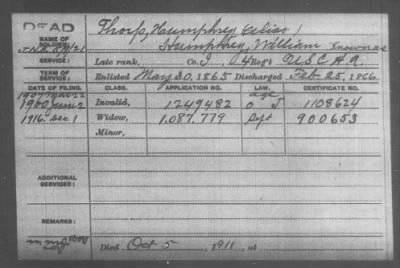 DEAD
NAME OF SOLDIER:
Thorp, Humphrey, alias
Humphrey, William
SERVICE:
Late rank, Co. I, Reg't U.S.C.H.A.
TERM OF SERVICE:
Enlisted May 30, 1865 Discharged Feb 25, 1866
DATE OF FILING. CLASS. APPLICATION NO. LAW. CERTIFICATE NO.
1907 age
1900 June 2 Invalid, 1249482 1108624
1916 Dec 1 Widow, 1.087.779 Sept 900653
Minor,
ADDITIONAL SERVICES:
REMARKS:
Died Oct 5, 1911, at